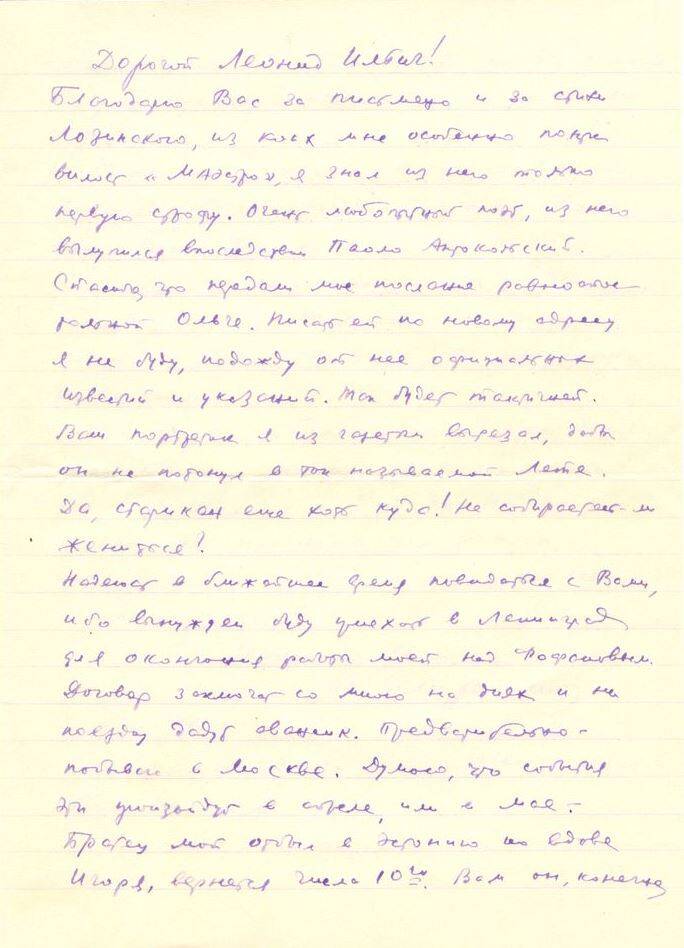 Дорогой Леонид Ильич!
Благодарю Вас за письмецо и за стихи
Лозинского, из коих мне особенно понра
вилось «Маэстро», я знал из него только
первую строфу. Очень любопытный поэт, из него
вылупился впоследствии Павло Антокольский.
Спасибо, что передали мое послание
Ольге. Писать ей по новому адресу
я не буду, подожду от нее официальных
известий и указаний. Так будет тактичней.
Ваш портретик я из газеты вырезал, дабы
он не потонул в так называемой Лете.
Да, старикан еще хоть куда! Не собирается ли
жениться?
Надеюсь в ближайшее время повидаться с Вами,
ибо вынужден буду приехать в Ленинград
для окончания работы моей над Фофановым.
Договор заключат со мною на днях и на
поездку дадут авансик. Предварительно -
побываю в Москве. Думаю, что события
эти произойдут в апреле, или в мае -
Братец мой отбыл в Эстонию ко вдове
Игоря, вернется числа 10го. Вам он, конечно